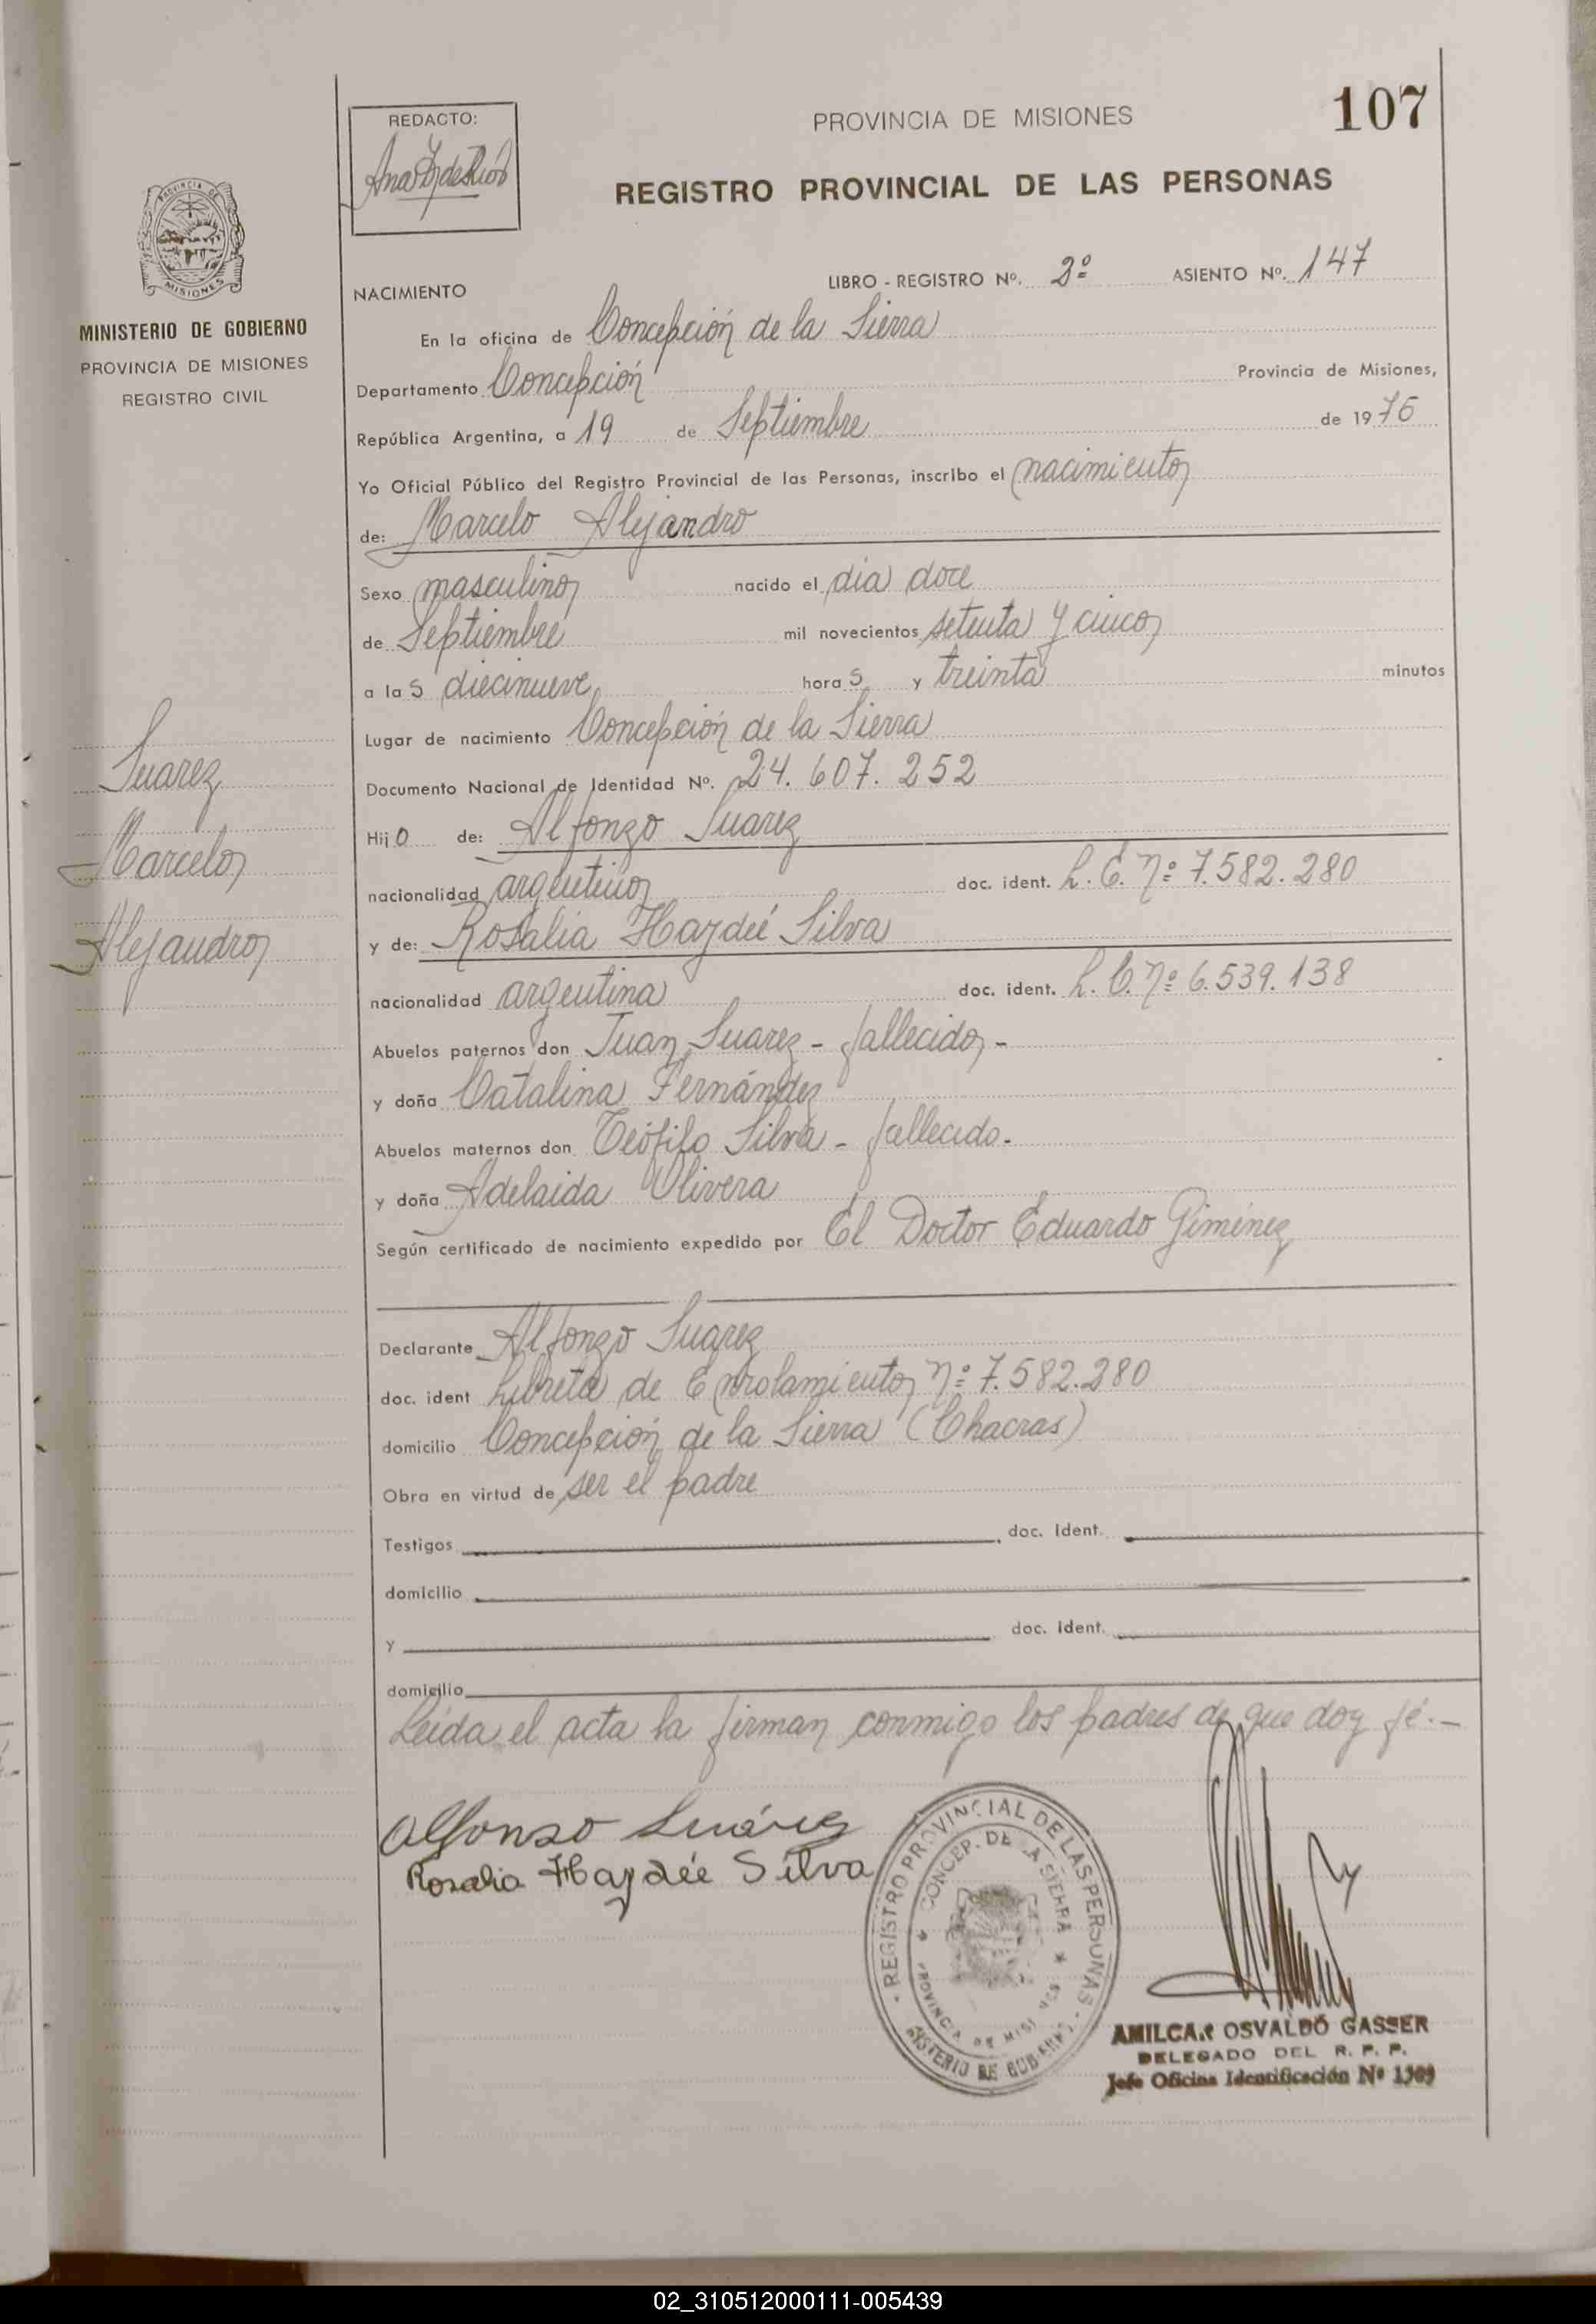 107
REDACTO:
PROVINCIA DE MISIONES
REGISTRO PROVINCIAL DE LAS PERSONAS
PROVINCIA DE
MISIONES
MINISTERIO DE GOBIERNO
PROVINCIA DE MISIONES
REGISTRO CIVIL
LIBRO - REGISTRO Nº. 2º ASIENTO Nº. 147
NACIMIENTO
En la oficina de Concepción de la Sierra
Departamento Concepción Provincia de Misiones,
República Argentina, a 19 de Septiembre de 1975
Yo Oficial Público del Registro Provincial de las Personas, inscribo el nacimiento
de: Marcelo Alejandro
Sexo masculino nacido el día doce
de Septiembre mil novecientos setenta y cinco
a las diecinueve horas y treinta minutos
Lugar de nacimiento Concepción de la Sierra
Documento Nacional de Identidad Nº. 24.607.252
Hijo de: Alfonzo Suarez
nacionalidad argentino doc. ident. L.E. Nº 7.582.280
y de: Rosalia Haydeé Silva
nacionalidad argentina doc. ident. L.C. Nº 6.539.138
Abuelos paternos don Juan Suarez - fallecido -
y doña Catalina Fernández
Abuelos maternos don Teófilo Silva - fallecido.
y doña Adelaida Olivera
Según certificado de nacimiento expedido por El Doctor Eduardo Giménez
Declarante Alfonzo Suarez
doc. ident Libreta de Enrolamiento Nº 7.582.280
domicilio Concepción de la Sierra (Chacras)
Obra en virtud de ser el padre
Testigos doc. ident.
domicilio
y doc. ident.
domicilio
Leída el acta la firman conmigo los padres de que doy fé.-
Suarez
Marcelo
Alejandro
Alfonso Suárez
Rosalia Haydée Silva
REGISTRO PROVINCIAL DE LAS PERSONAS
CONCEP. DE LA SIERRA
PROVINCIA DE MISIONES
AMILCAR OSVALDO GASSER
DELEGADO DEL R. P. P.
Jefe Oficina Identificación Nº 1309
02_310512000111-005439